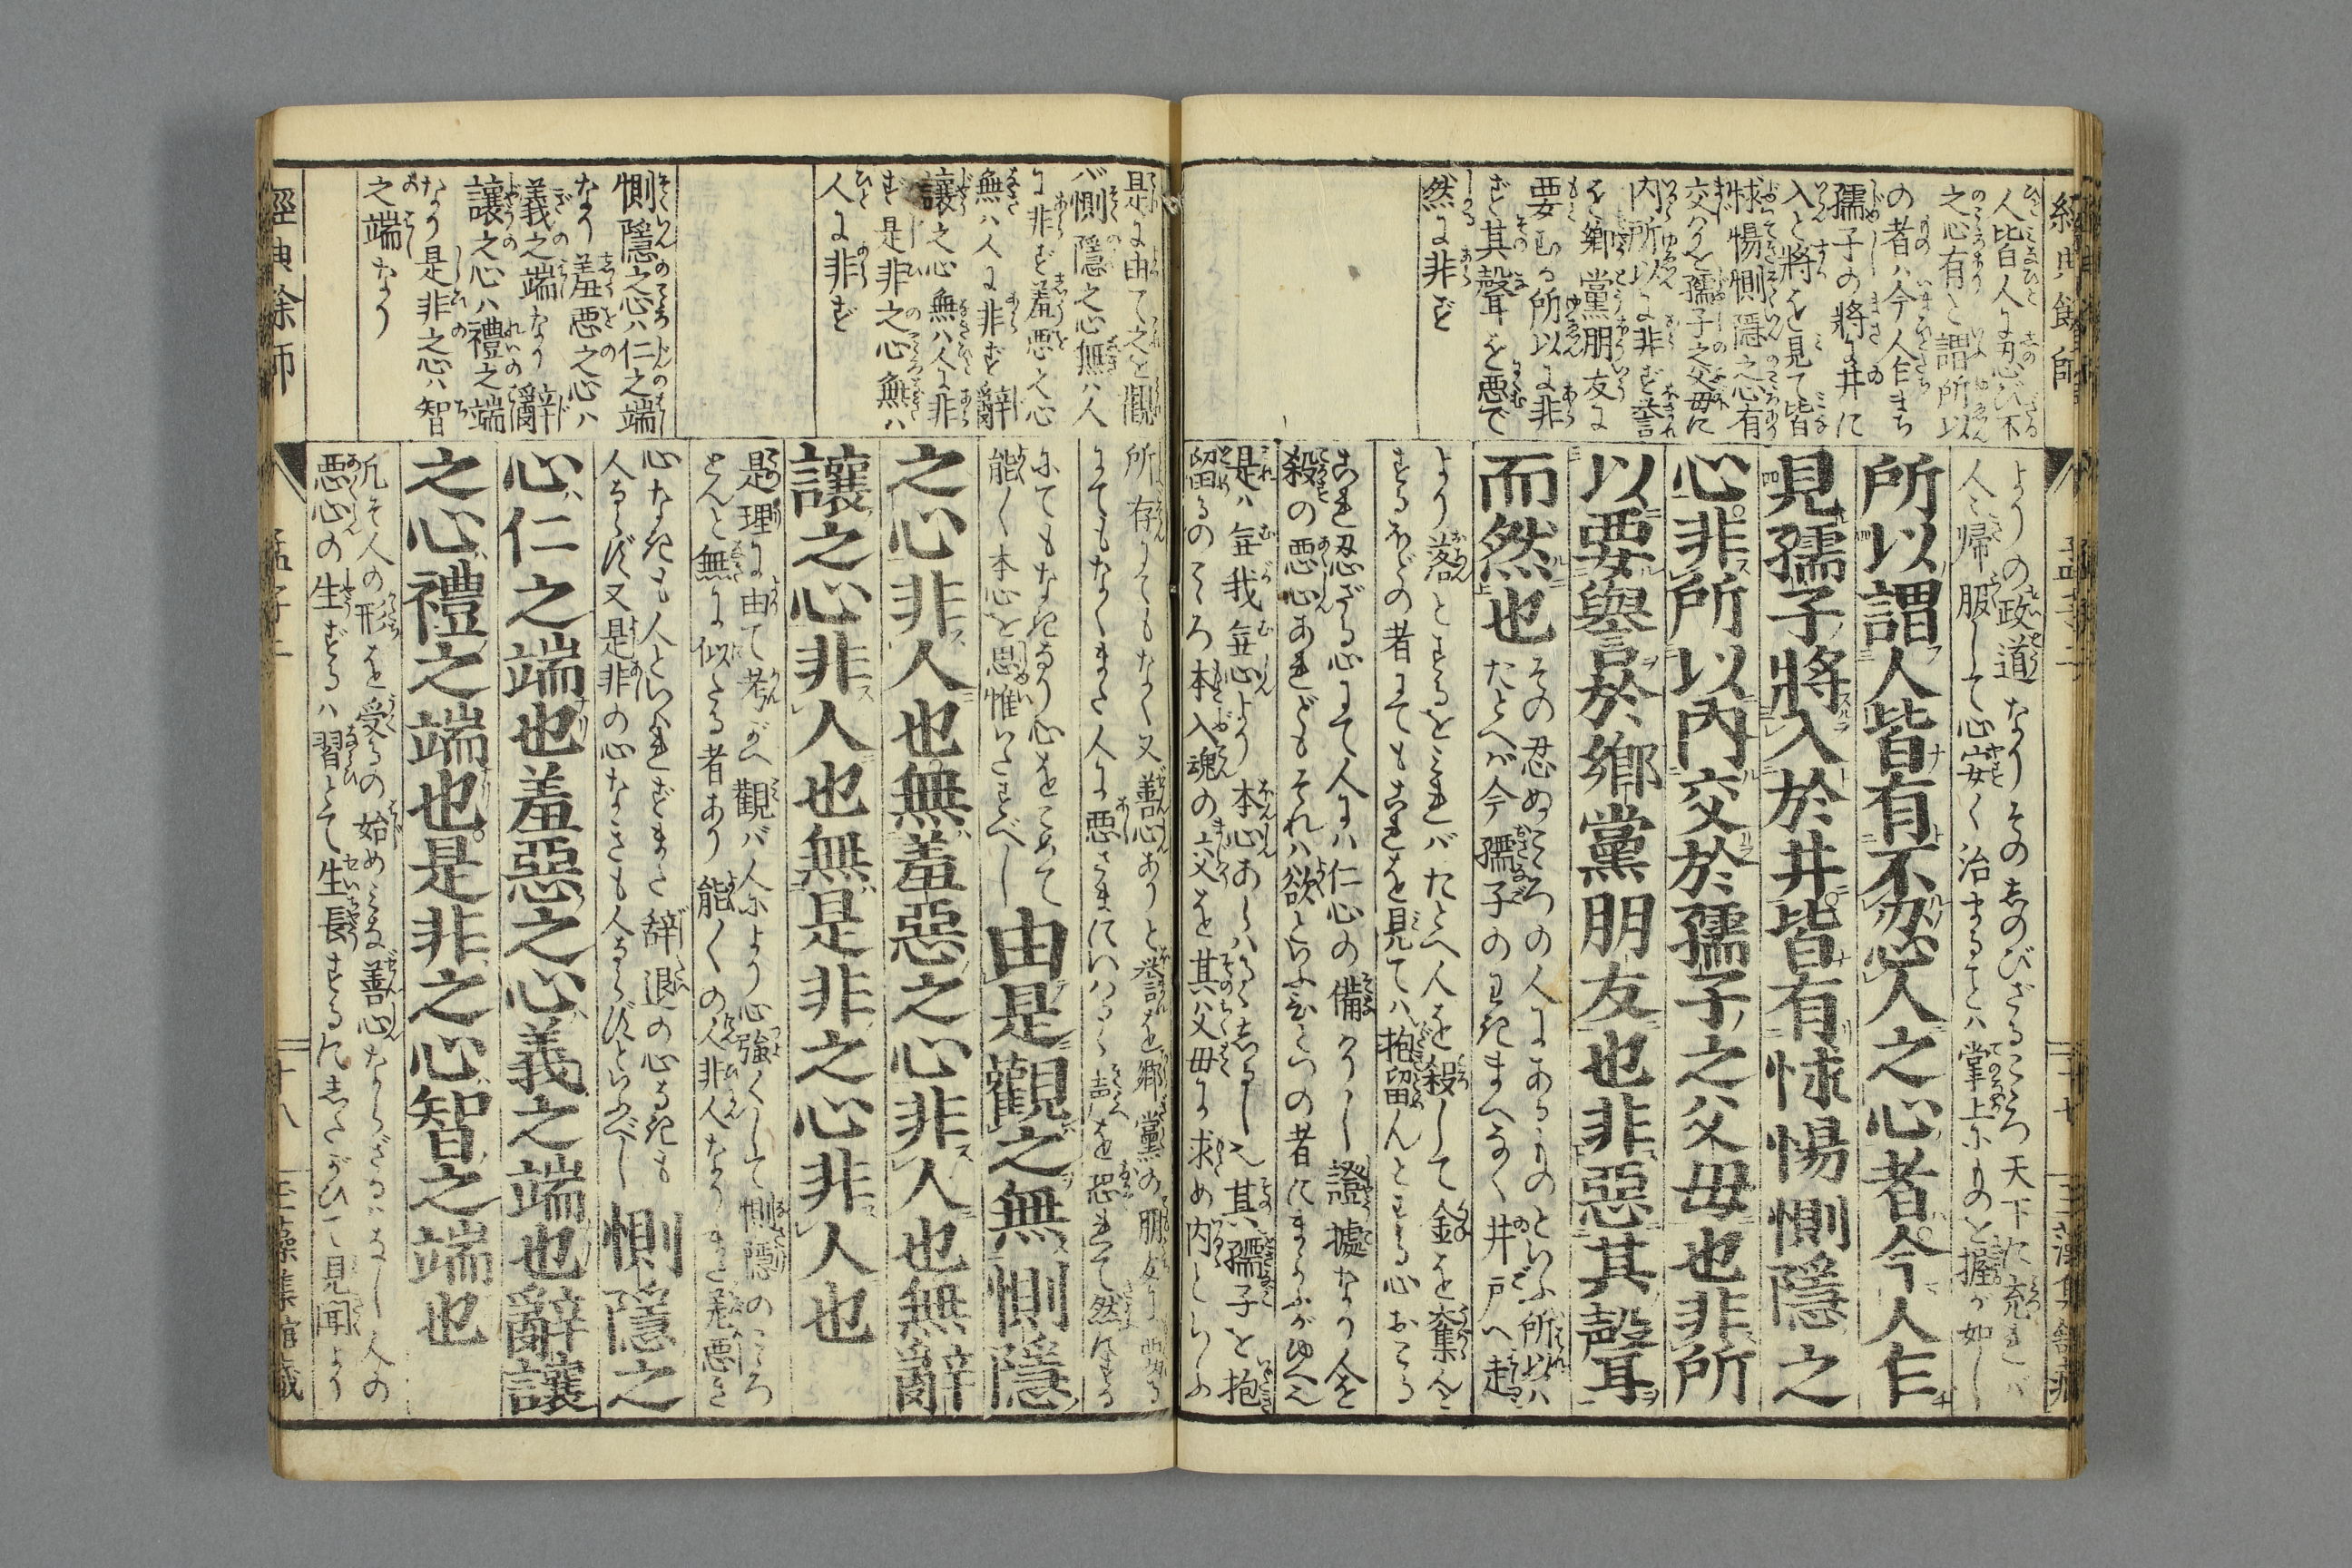 人皆人に忍び不
之心有と謂所以
の者ハ今人乍まち
孺子の將に井に
入と將を見て皆
怵惕惻隱之心有
交りを孺子之父毋に
内所以に非ず誉
を鄉黨朋友に
要むる所以に非
ず其聲を悪で
然に非ず
よりの政道なりそのしのびざるこころ天下に充れバ
人々帰服して心安く治まることハ掌上にものを握が如し
所以謂人皆有不忍人之心者今人乍
見孺子將入於井皆有怵惕惻隱之
心非所以內交於孺子之父毋也非所
以要譽於鄉黨朋友也非惡其聲
而然也
その忍ぬこころの人にあるものといふ所以ハ
たとへバ今孺子のわきまへなく井戸へ走
より落とするをみれバたとへ人を殺して金を奪んと
するほどの者にてもこれを見てハ抱留んとする心おこる
これ忍ざる心にて人にハ仁心の備りし證拠なり人を
殺の悪心あれどもそれハ欲といふ
是ハ無我無心より本心あらハるる
其孺子を抱
留るのころ本入魂の交を其父毋に求め内といふ
是に由て之を觀
バ惻隱之心無ハ人
に非ず羞悪之心
無ハ人に非ず辭
讓之心無ハ人に非
ず是非之心無ハ
人に非ず
惻隱之心ハ仁之端
なり羞悪之心ハ
義之端なり辭
讓之心ハ禮之端
なり是非之心ハ智
之端なり
所存にてもなく又善心ありと誉を郷黨の朋友に要る
にてもなくまた人に悪さまにいはるる声を恐れて然にする
にてもなきなり心をこめて
能く本心を思惟いたすべし
由是觀之無惻隱
之心非人也無羞惡之心非人也無辭
讓之心非人也無是非之心非人也
是理に由て考がへ觀バ人によりて心強くして惻隱のこころ
とんと無に似たる者あり能くの人非人なり
心なきも人といハれずまた辞退の心なきも
人ならず又是非の心なきも人ならずといふべし
惻隱之
心仁之端也羞惡之心義之端也辭讓
之心禮之端也是非之心智之端也
凡そ人の形を受るの始めみな善心ならざるハなし人の
悪心の生ずるハ習とて生長するにしたがひて見聞より
經典餘師
孟子二
二十八